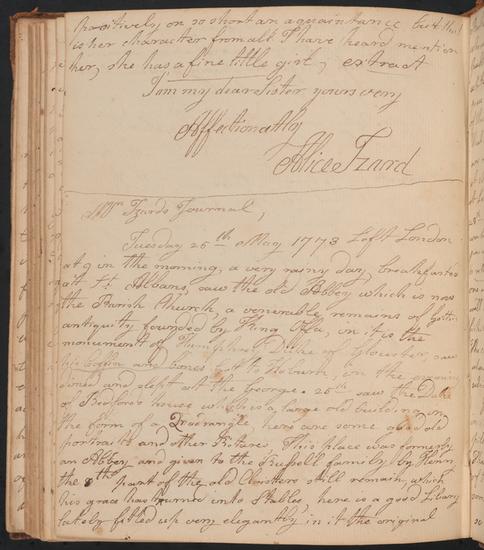 positively on so short an acquaintance but this
is her character from all I have heard mention
her, she has a fine little girl, extract
I am my dear Sister yours very
Affectionately
Alice Izard
Mrs Izards Journal,
Tuesday 25th May 1773 Left London
at 9 in the morning, a very rainy day, breakfasted
att St. Albans, saw the old Abbey which is now
the Parish Church, a venerable remains of Gothic
antiquity founded by King Offa, in it is the
monument of Humphrey Duke of Glocester, saw
his Coffin and bones, went to Woburn, in the evening
dined and slept att the George. 26th saw the Duke
of Bedfords house which is a large old building in
the form of a Quadrangle, here are some good old
portraits and other Pictures. This place was formerly
an Abbey, and given to the Russell family by Henry
the 8th part of the old Cloisters still remain, which
his grace has turned into Stables, here is a good Library
lately fitted up very elegantly in it the original